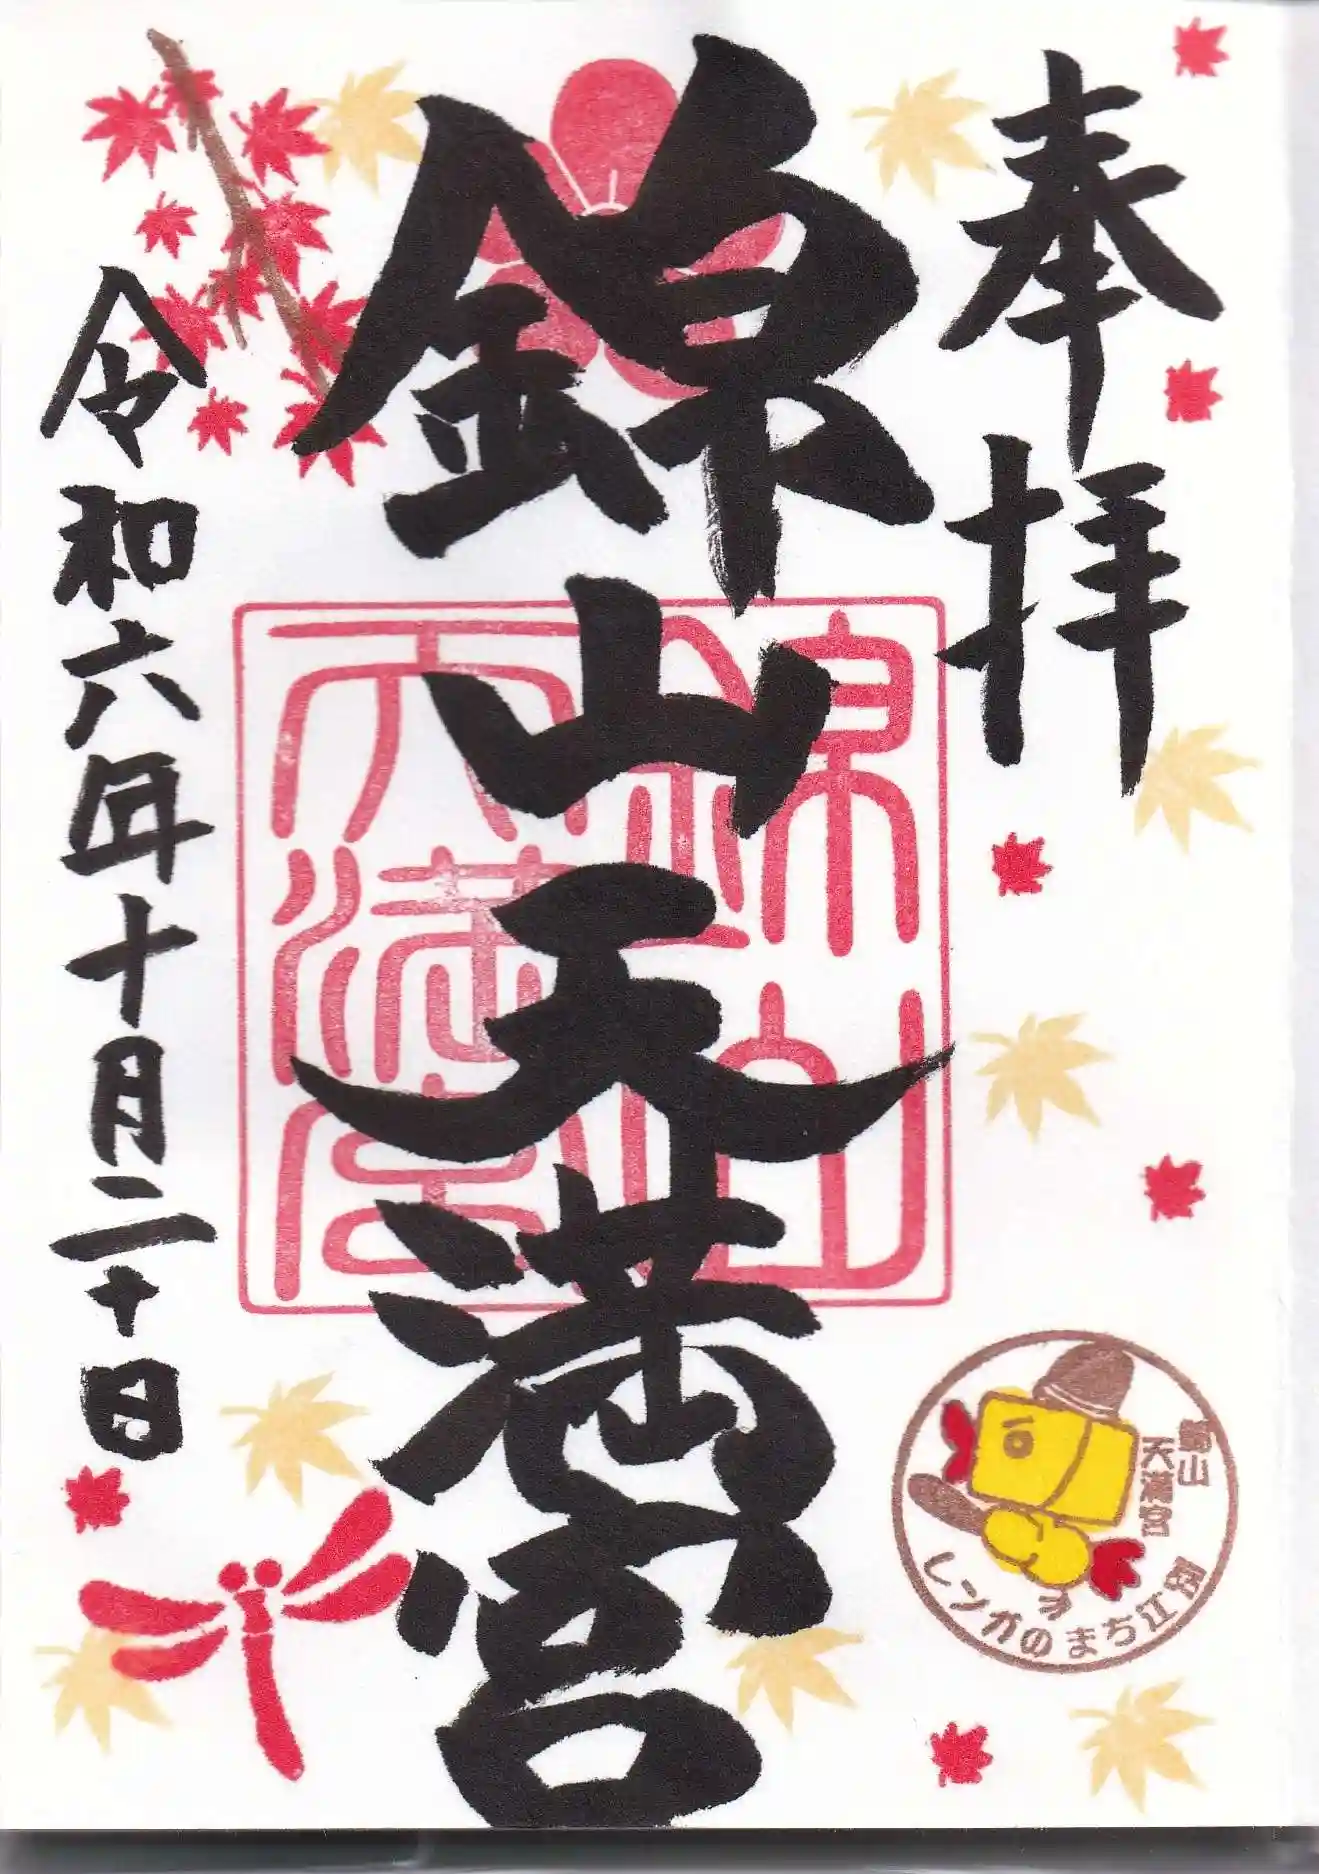 奉拝
錦山天満宮
令和六年十月二十日
錦山天満宮
錦山
天満宮
レンガのまち江別